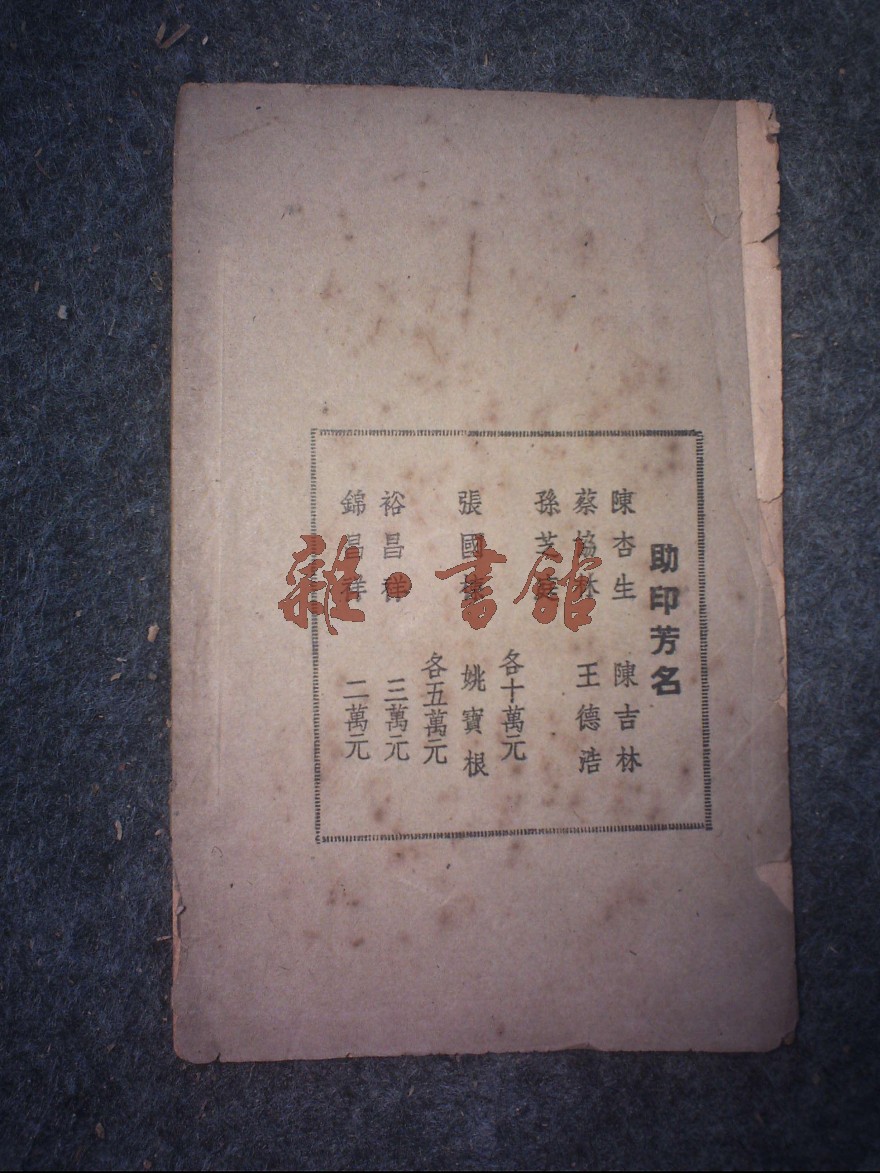 助印芳名
陳杏生　陳吉林
蔡協林　王德浩
孫芝
各十萬元
張國　姚寶根
各五萬元
裕昌祥　三萬元
錦昌祥　二萬元
雜·書館